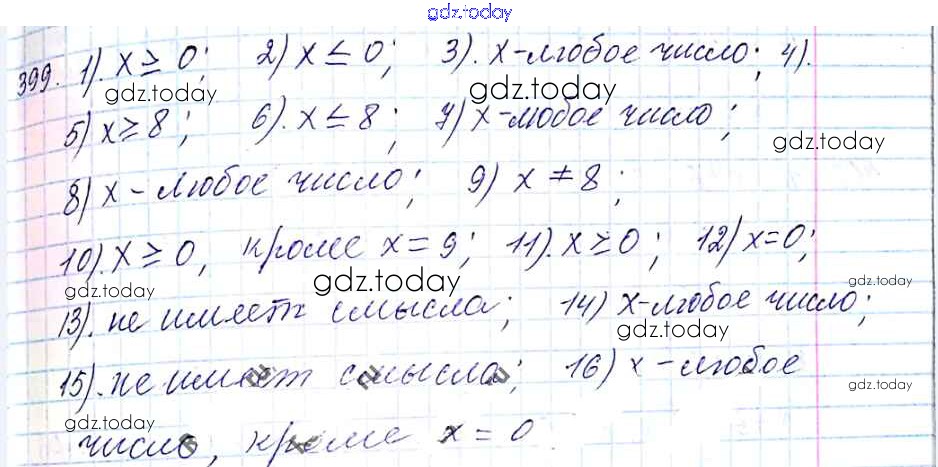 gdz.today
399. 1). x ≥ 0; 2) x ≤ 0; 3). x-любое число; 4).
gdz.today gdz.today gdz.today
5) x ≥ 8; 6). x ≤ 8; 7) x-любое число;
gdz.today
8) x - любое число; 9) x ≠ 8;
10). x ≥ 0, кроме x = 9; 11). x ≥ 0; 12) x=0;
gdz.today gdz.today gdz.today
13). не имеет смысла; 14) x-любое число;
gdz.today
15). не имеет смысла; 16) x - любое
gdz.today
gdz.today
число, кроме x = 0